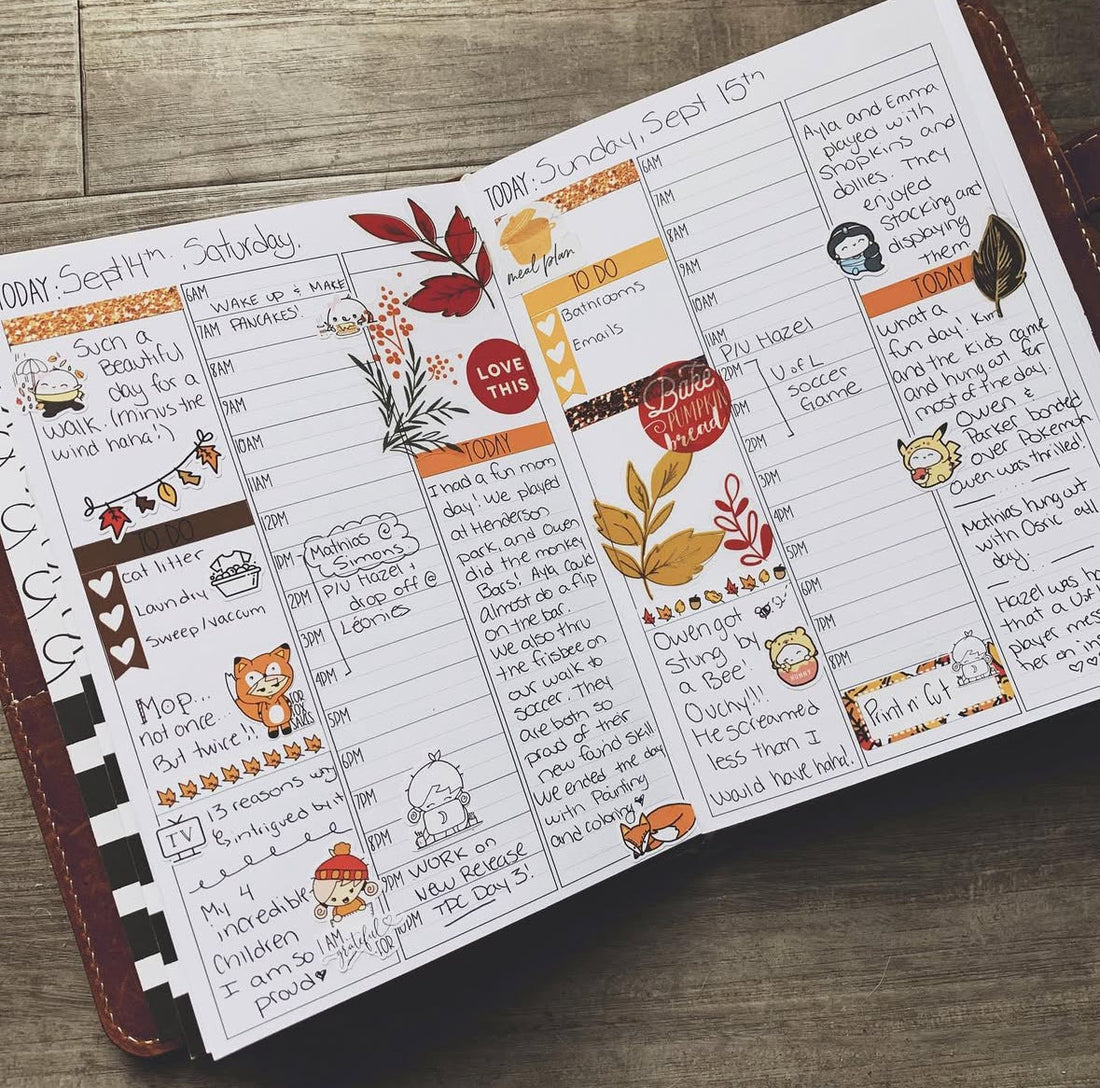 TODAY: Sept 14th., Saturday.
Such a
Beautiful
day for a
walk. (minus the
wind haha!)
TO DO
cat litter
Laundry
sweep/vaccum
Mop...
not once...
But twice!!
FOR
FOX
SAKES
TV
13 reasons why
& intrigued by it
My 4
incredible
Children
I am so
proud
I AM
grateful
FOR
6AM WAKE UP & MAKE
7AM PANCAKES!
8AM
9AM
10AM
11AM
12PM
1PM Mathias @
Simons
2PM P/U Hazel +
drop off @
3PM Léonies
4PM
5PM
6PM
7PM
8PM
WORK on
9PM New Release
10PM TPC Day 3!
LOVE
THIS
TODAY
I had a fun mom
day! We played
at Henderson
park, and Owen
did the monkey
Bars! Ayla could
almost do a flip
on the bar.
We also thru
the frisbee on
our walk to
soccer. They
are both so
proud of their
new found skill.
We ended the day
with Painting
and coloring
TODAY: Sunday, Sept 15th
meal plan
TO DO
Bathrooms
Emails
Bake
PUMPKIN
bread
Owen got
stung by
a Bee!
Ouchy!!!
He screamed
less than I
would have haha!
HUNNY
6AM
7AM
8AM
9AM
10AM
11AM P/U Hazel
12PM U of L
soccer
1PM Game
2PM
3PM
4PM
5PM
6PM
7PM
8PM
Print n' Cut
Ayla and Emma
played with
shopkins and
dollies. They
enjoyed
stacking and
displaying
them
TODAY
What a
fun day! Kim
and the kids came
and hung out for
most of the day.
Owen &
Parker bonded
over Pokemon
Owen was thrilled!
Mathias hung out
with Osric all
day.
Hazel was
that a U of
player
her on